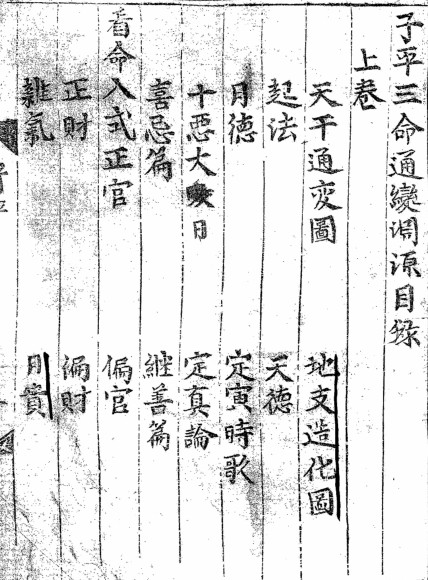 子平三命通變淵源目錄
上卷
天干通变圖 地支造化圖
起法 天德
月德 定寅時歌
十惡大敗日 定真論
喜忌篇 継善篇
看命入式正官 偏官
正財 偏財
雜氣 日貴